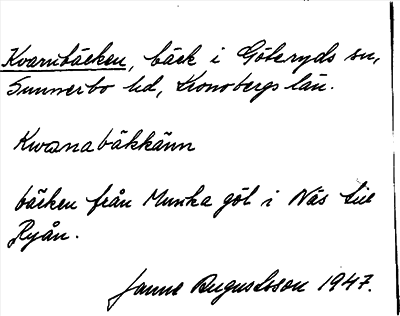 Kvarnbäcken, bäck i Göteryds sn,
Sunnerbo hd, Kronobergs län.
Kwarnabäkkänn
bäcken från Munka göl i Näs till
Ryån.
Janne Augustsson 1947.